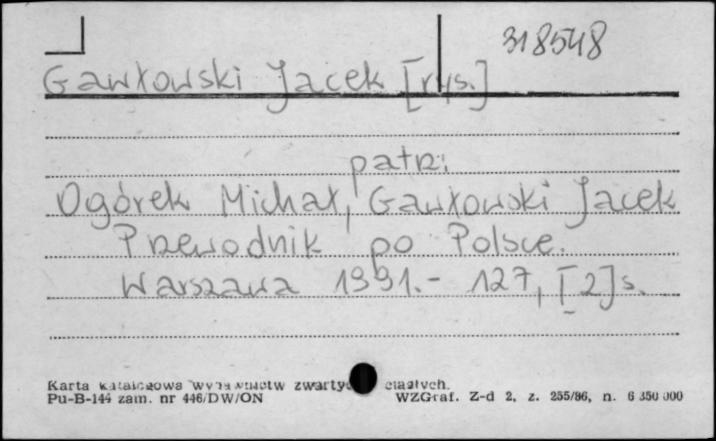 318548
Gawłowski Jacek [rys.]
patrz:
Ogórek Michał, Gawłowski Jacek
Przewodnik po Polsce.
Warszawa 1991.- 127, [2] s.
Karta katalogowa wydawnictw zwartych ciągłych.
Pu-B-144 zam. nr 446/DW/ON
WZGraf. Z-d 2, z. 255/86, n. 6 350 000